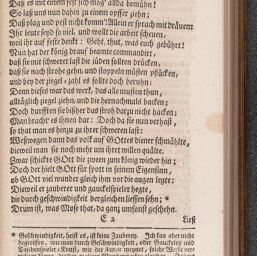 Daß es mit einem fest sich mög' allda bemühn!
So laß uns nun dahin zu einem opffer ziehn;
Daß plag und pest nicht komm'! Allein er sprach mit dräuen:
Ihr leute seyd so viel, und wolle die arbeit scheuen,
weil ihr auf feste denkt: Geht, thut, was euch gebührt!
Nun hat der könig drauf beamte commandirt,
daß sie mit schwerer last die jüden sollten drücken,
daß sie nach strohe gehn, und stoppeln müsten pflücken,
und bey der ziegel-zahl es sollte doch beruhn:
Denn dieses war das werck, das alle musten thun,
alltäglich ziegel ziehn, und die hernachmals backen;
Doch durften sie bisher das stroh darzu nicht hacken;
Man bracht es ihnen dar: Doch da sie nun verhast,
so that man es hinzu zu ihrer schweren last:
Weßwegen dann das volk auf GOttes diener schmählte,
dieweil man sie noch mehr um ihret willen quälte.
Zwar schickte GOtt die zween zum könig wieder hin;
Doch der hielt GOtt für spott in seinem Eigensinn,
ob GOtt viel wunder gleich ihm vor die augen legte:
Dieweil er zauberer und gauckelspieler hegte,
die durch geschwindigkeit dergleichen liessen sehn; *
Drum ist, was Mose that, da ganz umsonst geschehn.
E 2 Ließ
* Geschwindigkeit, heist es, ist keine Zauberey. Ich kan aber nicht
begreiffen, wie man durch Geschwindigkeit, oder Gauckeley und
Taschenspieler-Kunst, wie der Autor meynet, solche